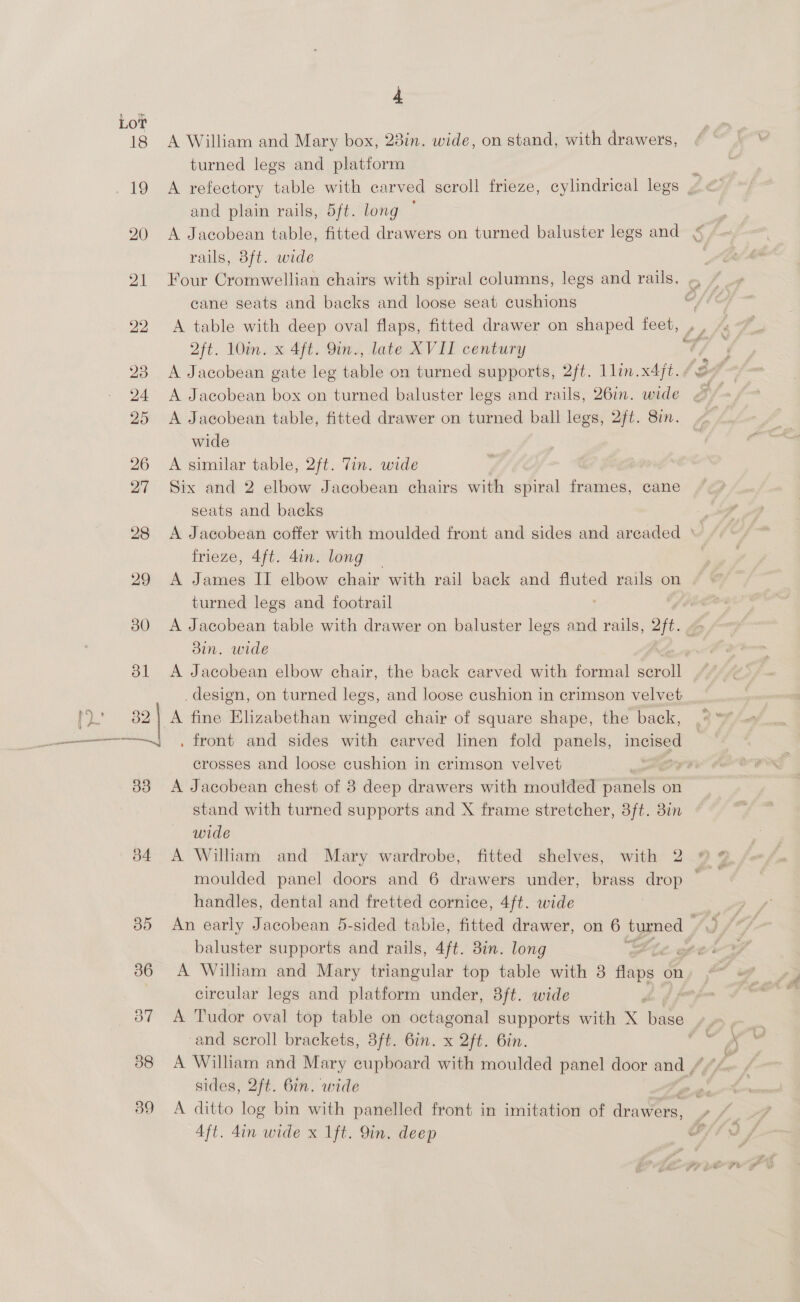 4
LOT
18 A William and Mary box, 23in. wide, on stand, with drawers,
turned legs and platform
19 A refectory table with carved scroll frieze, cylindrical legs
and plain rails, 5ft. long
20 A Jacobean table, fitted drawers on turned baluster legs and
rails, 3ft. wide
21 Four Cromwellian chairs with spiral columns, legs and rails,
cane seats and backs and loose seat cushions
22 A table with deep oval flaps, fitted drawer on shaped feet,
2ft. 10in. x 4ft. 9in., late XVII century
23 A Jacobean gate leg table on turned supports, 2ft. 11in.x4ft.
24 A Jacobean box on turned baluster legs and rails, 26in. wide
25 A Jacobean table, fitted drawer on turned ball legs, 2ft. 8in.
wide
26 A similar table, 2ft. 7in. wide
27 Six and 2 elbow Jacobean chairs with spiral frames, cane
seats and backs
28 A Jacobean coffer with moulded front and sides and arcaded
frieze, 4ft. 4in. long
29 A James II elbow chair with rail back and fluted rails on
turned legs and footrail
30 A Jacobean table with drawer on baluster legs and rails, 2ft.
3in. wide
31 A Jacobean elbow chair, the back carved with formal scroll
design, on turned legs, and loose cushion in crimson velvet
32 A fine Elizabethan winged chair of square shape, the back,
front and sides with carved linen fold panels, incised
crosses and loose cushion in crimson velvet
33 A Jacobean chest of 3 deep drawers with moulded panels on
stand with turned supports and X frame stretcher, 3ft. 3in
wide
34 A William and Mary wardrobe, fitted shelves, with 2
moulded panel doors and 6 drawers under, brass drop
handles, dental and fretted cornice, 4ft. wide
35 An early Jacobean 5-sided table, fitted drawer, on 6 turned
baluster supports and rails, 4ft. 3in. long
36 A William and Mary triangular top table with 3 flaps on
circular legs and platform under, 3ft. wide
37 A Tudor oval top table on octagonal supports with X base
and scroll brackets, 3ft. 6in. x 2ft. 6in.
38 A William and Mary cupboard with moulded panel door and
sides, 2ft. 6in. wide
39 A ditto log bin with panelled front in imitation of drawers,
4ft. 4in wide x 1ft. 9in. deep